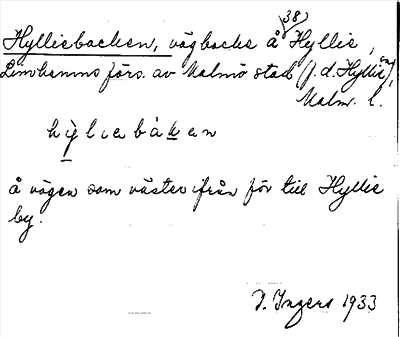 38)
Hylliebacken, vägbacke å Hyllie,
Limhamns förs. av Malmö stad (f.d. Hyllie sn),
Malm. l.
hỳliebàken
å vägen som västerifrån för till Hyllie
by.
I. Ingers 1933